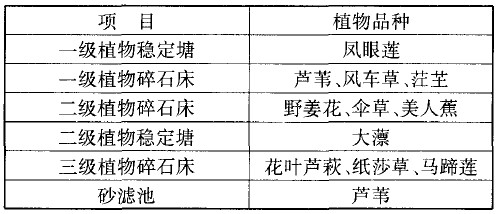 项 目 植物品种
一级植物稳定塘 凤眼莲
一级植物碎石床 芦苇、风车草、茳芏
二级植物碎石床 野姜花、伞草、美人蕉
二级植物稳定塘 大薸
三级植物碎石床 花叶芦荻、纸莎草、马蹄莲
砂滤池 芦苇